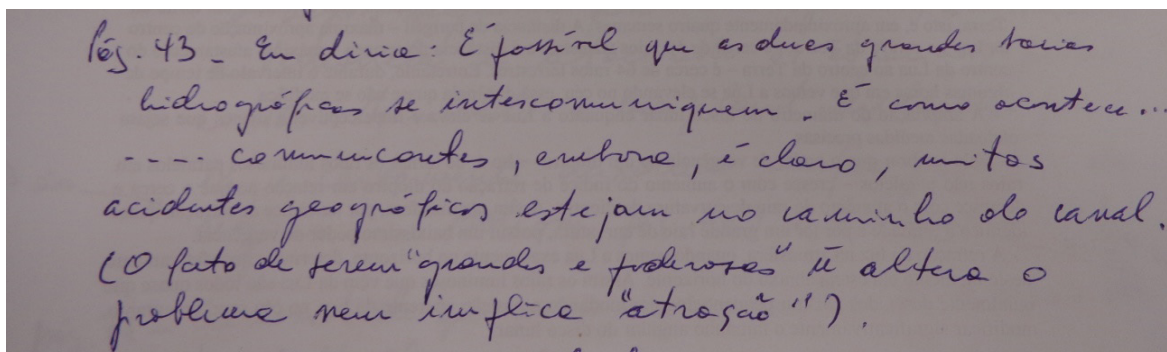 Pág. 43 - Eu diria: É possível que as duas grandes bacias
hidrográficas se intercomuniquem. É como acontece...
.... comunicantes, embora, é claro, muitos
acidentes geográficos estejam no caminho do canal.
(O fato de serem "grandes e poderosas" ñ altera o
problema nem implica "atração").